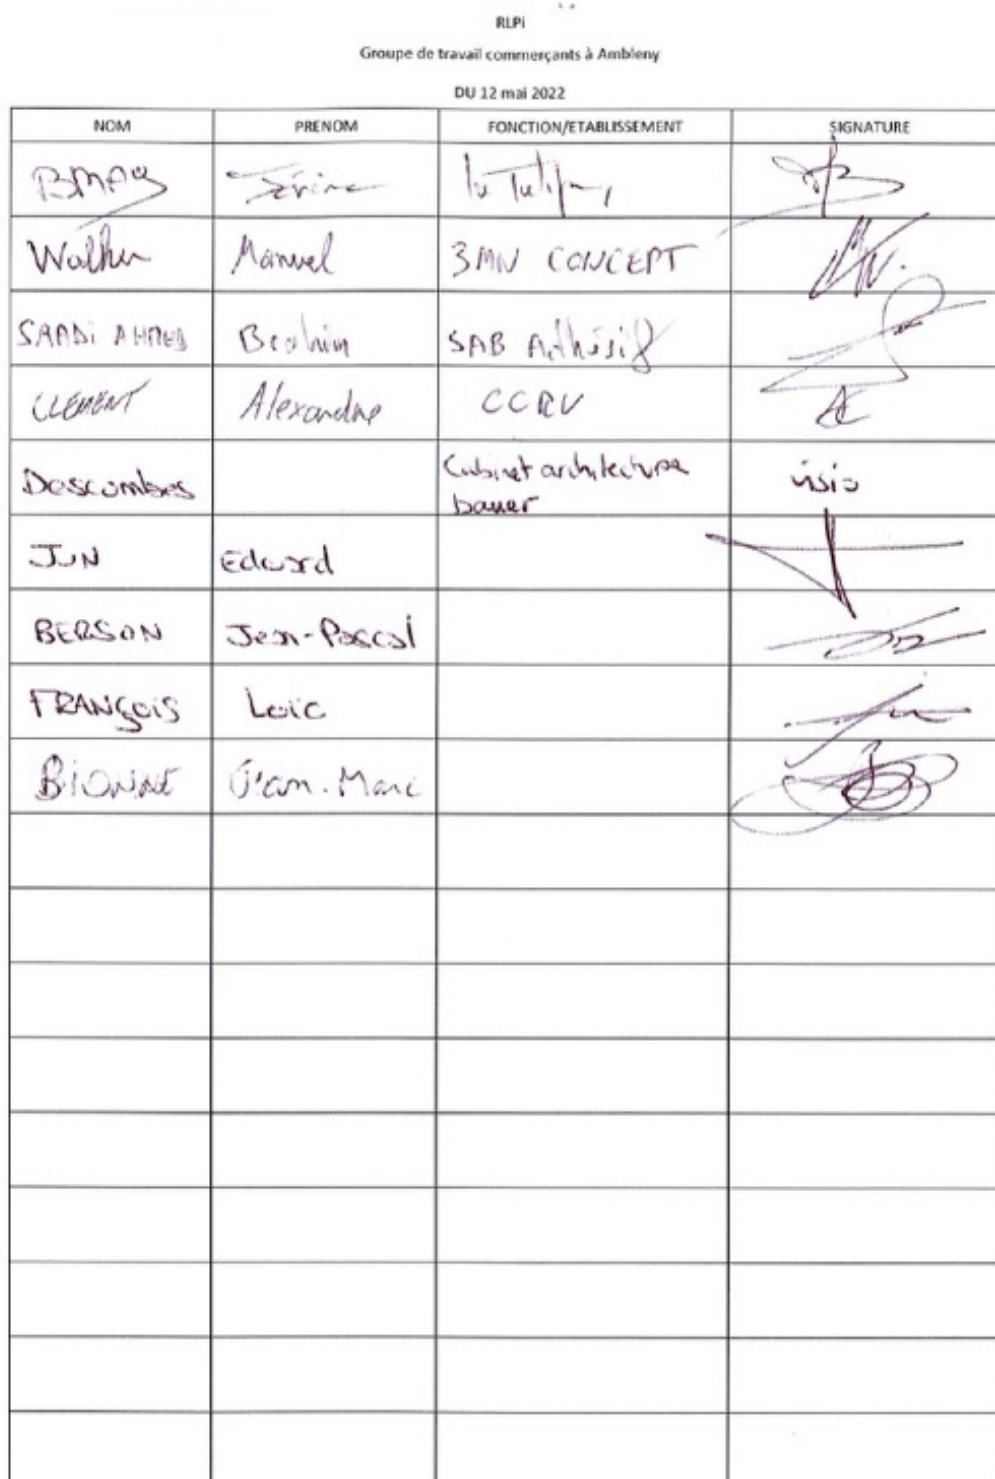 RLPi
Groupe de travail commerçants à Ambleny
DU 12 mai 2022
NOM PRENOM FONCTION/ETABLISSEMENT SIGNATURE
Manuel 3MN CONCEPT
SAADi AHMED Brahim SAB Adhésif
CLEMENT Alexandre CCRV AC
Descombes Cabinet architecture visio
bauer
JUN Edouard
BERSON Jean-Pascal
FRANÇOIS Loïc
BIONNE Jean-Marc